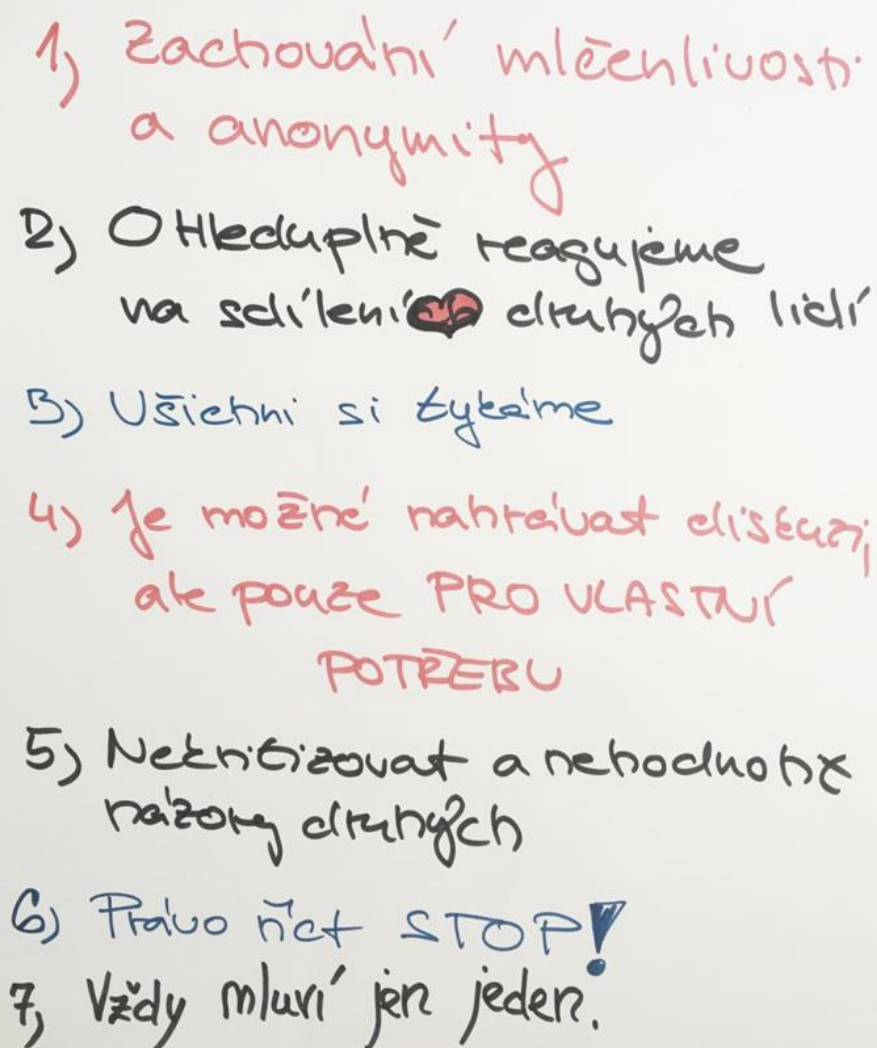 1) Zachování mlčenlivosti
a anonymity
2) OHleduplně reagujeme
na sdílení druhých lidí
3) Všichni si tykáme
4) Je možné nahrávat diskuzi,
ale pouze PRO VLASTNÍ
POTŘEBU
5) Nekritizovat a nehodnotit
názory druhých
6) Právo říct STOP!
7, Vždy mluví jen jeden.